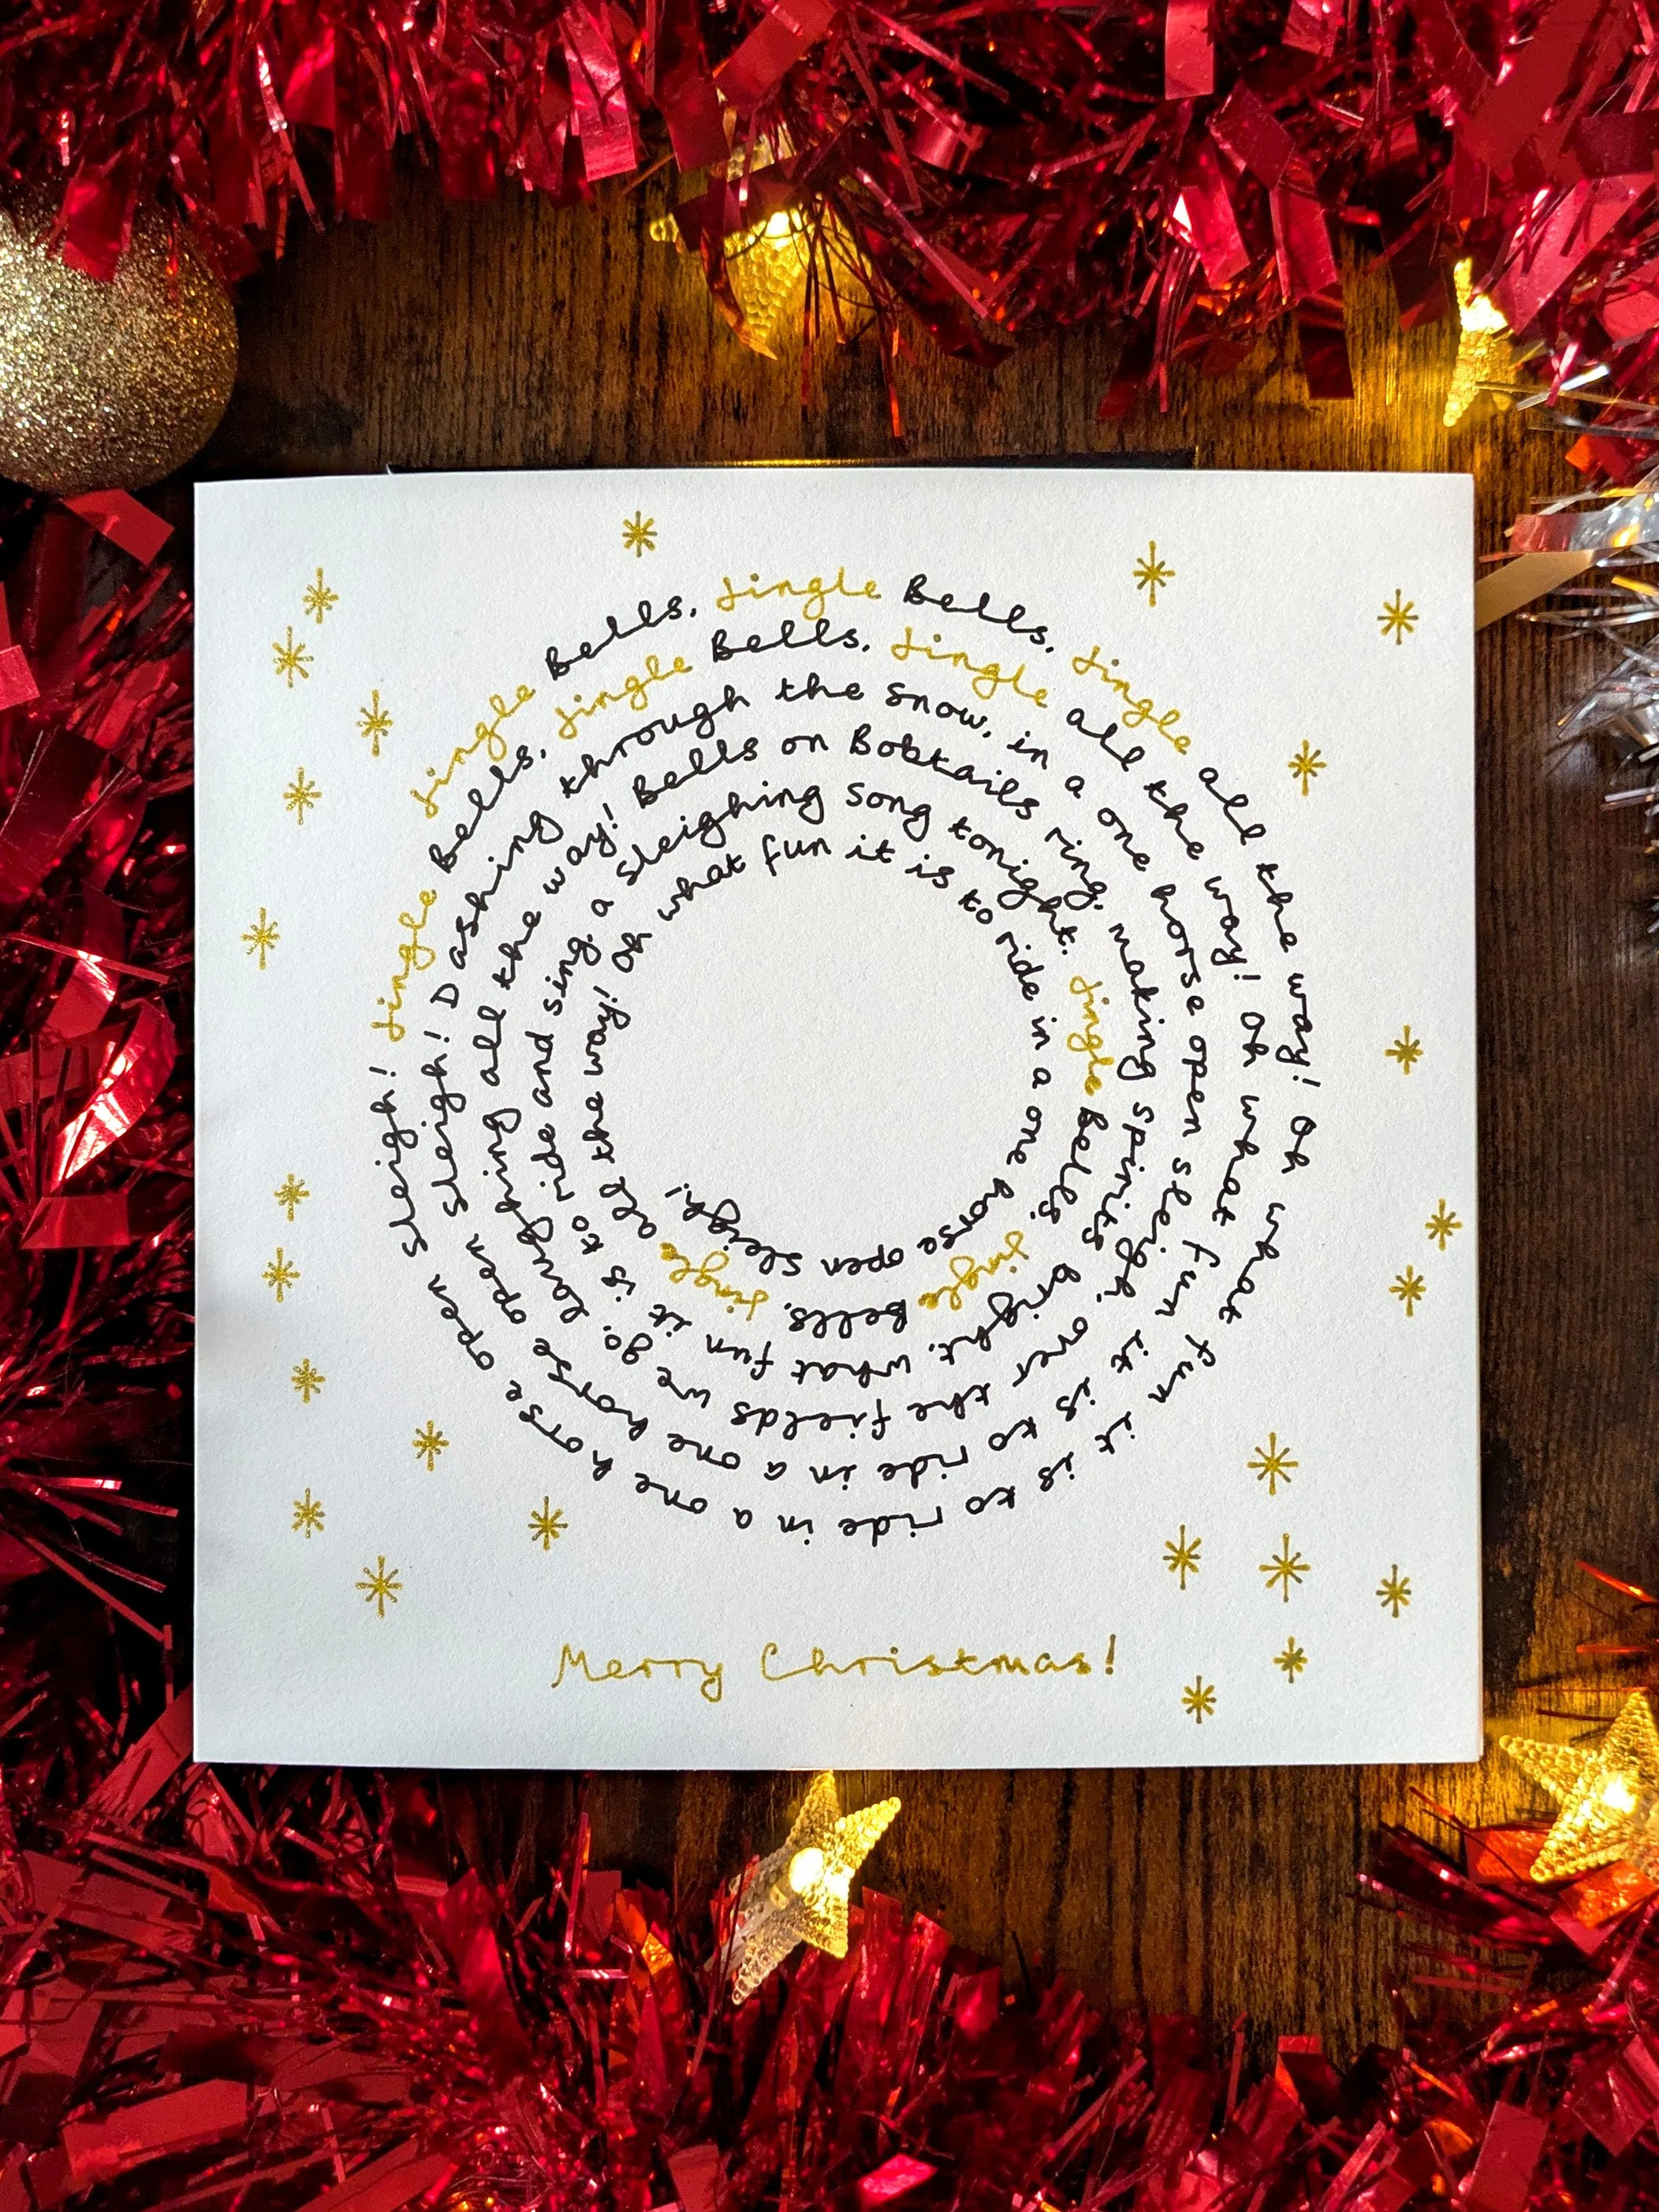 Jingle Bells, Jingle Bells, Jingle all the way! Oh what fun it is to ride in a one horse open sleigh!
Jingle Bells, Jingle Bells, Jingle all the way! Oh what fun it is to ride in a one horse open sleigh!
Dashing through the snow, in a one horse open sleigh! over the fields we go, laughing all the way!
Bells on Bobtails ring, making spirits bright, what fun it is to ride and sing,
a sleighing song tonight. Jingle Bells, Jingle Bells, Jingle all the way!
Oh what fun it is to ride in a one horse open sleigh!
Merry Christmas!